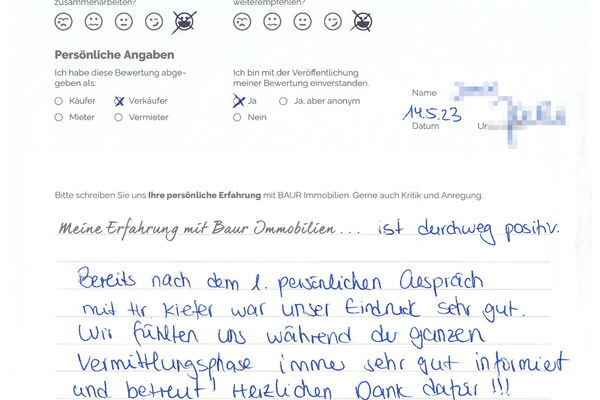 zusammenarbeiten? weiterempfehlen?
Persönliche Angaben
Ich habe diese Bewertung abge-
geben als:
Käufer Verkäufer
Mieter Vermieter
Ich bin mit der Veröffentlichung
meiner Bewertung einverstanden.
Ja Ja, aber anonym
Nein
Name
14.5.23
Datum
Bitte schreiben Sie uns Ihre persönliche Erfahrung mit BAUR Immobilien. Gerne auch Kritik und Anregung.
Meine Erfahrung mit Baur Immobilien... ist durchweg positiv.
Bereits nach dem 1. persönlichen Gespräch
mit Hr. Kiefer war unser Eindruck sehr gut.
Wir fühlten uns während der ganzen
Vermittlungsphase immer sehr gut informiert
und betreut! Herzlichen Dank dafür!!!